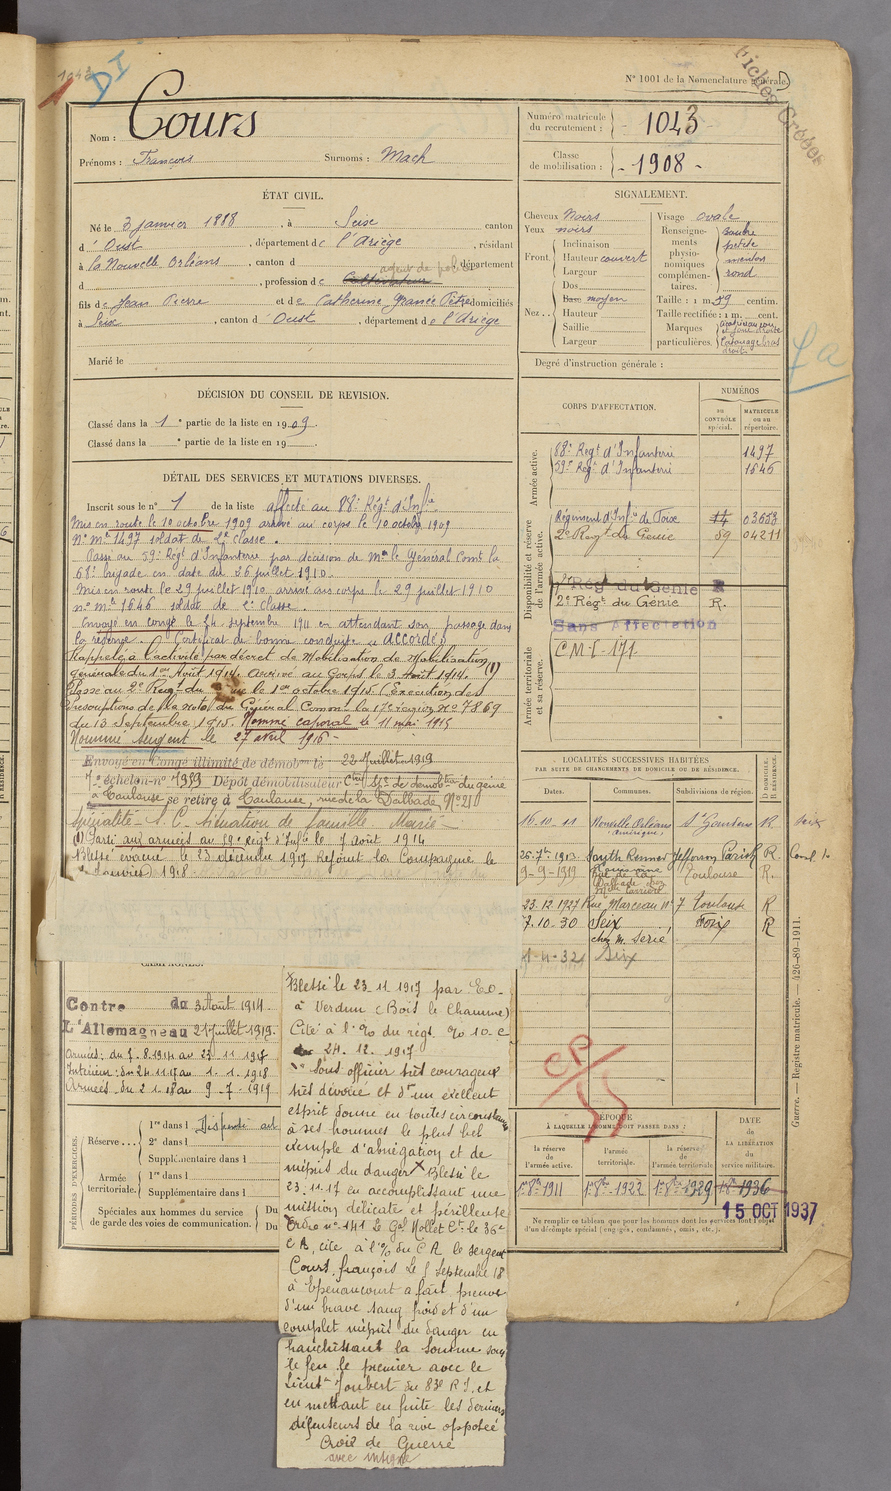 1043
DI
N° 1001 de la Nomenclature générale.
Fiches Croisées
Nom : Cours
Prénoms : François Surnoms : Mach
Numéro matricule du recrutement : 1043
Classe de mobilisation : 1908
ÉTAT CIVIL.
Né le 3 janvier 1888, à Seix canton
d'Oust, département de l'Ariège, résidant
à la Nouvelle Orléans, canton d département
agent de police
d , profession de Cultivateur
fils de Jean Pierre et de Catherine domiciliés
à Seix, canton d'Oust, département de l'Ariège
Marié le
SIGNALEMENT.
Cheveux Noirs
Yeux noirs
Front. Inclinaison
Hauteur couvert
Largeur
Nez. Dos
Base moyen
Hauteur
Saillie
Largeur
Visage ovale
Renseignements physionomiques complémentaires. bouche petite menton rond
Taille : 1 m. 59 centim.
Taille rectifiée : 1 m. cent.
Marques particulières.
Tatouage bras droit
Degré d'instruction générale :
fa
DÉCISION DU CONSEIL DE REVISION.
Classé dans la 1e partie de la liste en 1909.
Classé dans la e partie de la liste en 19
DÉTAIL DES SERVICES ET MUTATIONS DIVERSES.
Inscrit sous le n° 1 de la liste affecté au 88e Régt d'Infie
Mis en route le 10 octobre 1909 arrivé au corps le 10 octobre 1909
N° Mle 1497 soldat de 2e classe.
Passé au 59e Régt d'Infanterie par décision de Mr le Général Comt la
68e brigade en date du 26 juillet 1910.
Mis en route le 29 juillet 1910 arrivé au corps le 29 juillet 1910
n° Mle 1646 soldat de 2e classe.
Envoyé en congé le 24 septembre 1911 en attendant son passage dans
la réserve. Certificat de bonne conduite "Accordé"
Rappelé à l'activité par décret de Mobilisation de Mobilisation
générale du 1er Août 1914. Arrivé au Corps le 3 Août 1914. (1)
Passé au 2e Régt du Génie le 1er octobre 1915. (Exécution des
prescriptions de la note du Général Commt la 17e région No 7869
du 13 Septembre 1915. Nommé caporal le 11 mai 1915
Nommé sergent le 27 avril 1916
Envoyé en Congé illimité de démobon le 22 Juillet 1919
7e échelon n° 1353 Dépôt démobilisateur de démobon du génie
à Toulouse se retire à Toulouse, rue de la Dalbade N° 21
Spécialité - S. C. - situation de famille - Marié -
(1) Parti aux armées au 59e Régt d'Infie le 7 août 1914
Blessé évacué le 23 décembre 1917 Rejoint la Compagnie le
2 Janvier 1918
CORPS D'AFFECTATION.
NUMÉROS
AU CONTRÔLE spécial.
MATRICULE ou au répertoire.
Armée active.
88e Régt d'Infanterie 1497
59e Régt d'Infanterie 1646
Disponibilité et réserve de l'armée active.
Régiment d'Infie de Foix 14 03653
2e Régt de Génie 59 04211
2e Régt du Génie R
2e Régt du Génie R.
Sans Affectation
Armée territoriale et sa réserve.
C.M.I-171
LOCALITÉS SUCCESSIVES HABITÉES
PAR SUITE DE CHANGEMENTS DE DOMICILE OU DE RÉSIDENCE.
Dates. Communes. Subdivisions de région. D domicile. R résidence.
16-10-11 Nouvelle Orléans Amérique St Gaudens R Seix
26-7bre-1913 South Kenner Jefferson Parish R.
9-9-1919 Rue de la Dalbade Toulouse R.
23.12.1927 Rue Marceau n° 7 Toulouse R
7.10.30 Seix chez M. Serié Foix R
1-4-32 Seix
CP
CAMPAGNES.
Contre du 3 Août 1914.
L'Allemagne au 21 Juillet 1919.
Armées : du 7.8.1914 au 23-11-1917
Intérieur : du 24.11.17 au 1-1-1918
Armées du 2.1.18 au 9-7-1919
PÉRIODES D'EXERCICES.
Réserve... 1re dans l
2e dans l
Supplémentaire dans l
Armée territoriale. 1re dans l
Supplémentaire dans l
Spéciales aux hommes du service de garde des voies de communication. Du
Du
Blessé le 23.11.1917 par E.O.
à Verdun (Bois le Chaume)
Cité à l'% du régt % 10-e
24.12.1917
"Sous officier très courageux
très dévoué et d'un excellent
esprit donne en toutes circonstances
à ses hommes le plus bel
exemple d'abnégation et de
mépris du danger X Blessé le
23.11.17 en accomplissant une
mission délicate et périlleuse
Ordre n° 141 Le Gal Nollet Ct le 36e
C.A, cite à l'% du C.A le sergent
Cours, françois Le 5 Septembre 18
à Epenancourt a fait preuve
d'un brave sang froid et d'un
complet mépris du danger en
franchissant la Somme sous
le feu le premier avec le
Lieutt Joubert du 83e R I, et
en mettant en fuite les derniers
défenseurs de la rive opposée
Croix de Guerre
avec insigne
ÉPOQUE
À LAQUELLE L'HOMME DOIT PASSER DANS :
la réserve de l'armée active.
l'armée territoriale.
la réserve de l'armée territoriale
DATE DE LA LIBÉRATION du service militaire.
1er 8bre 1911 1er 8bre 1922 1er 8bre 1929 1er 8bre 1936
15 OCT 1937
Ne remplir ce tableau que pour les hommes dont les services font l'objet
d'un décompte spécial (engagés, condamnés, omis, etc.).
Guerre. — Registre matricule. — 426-89-1911.